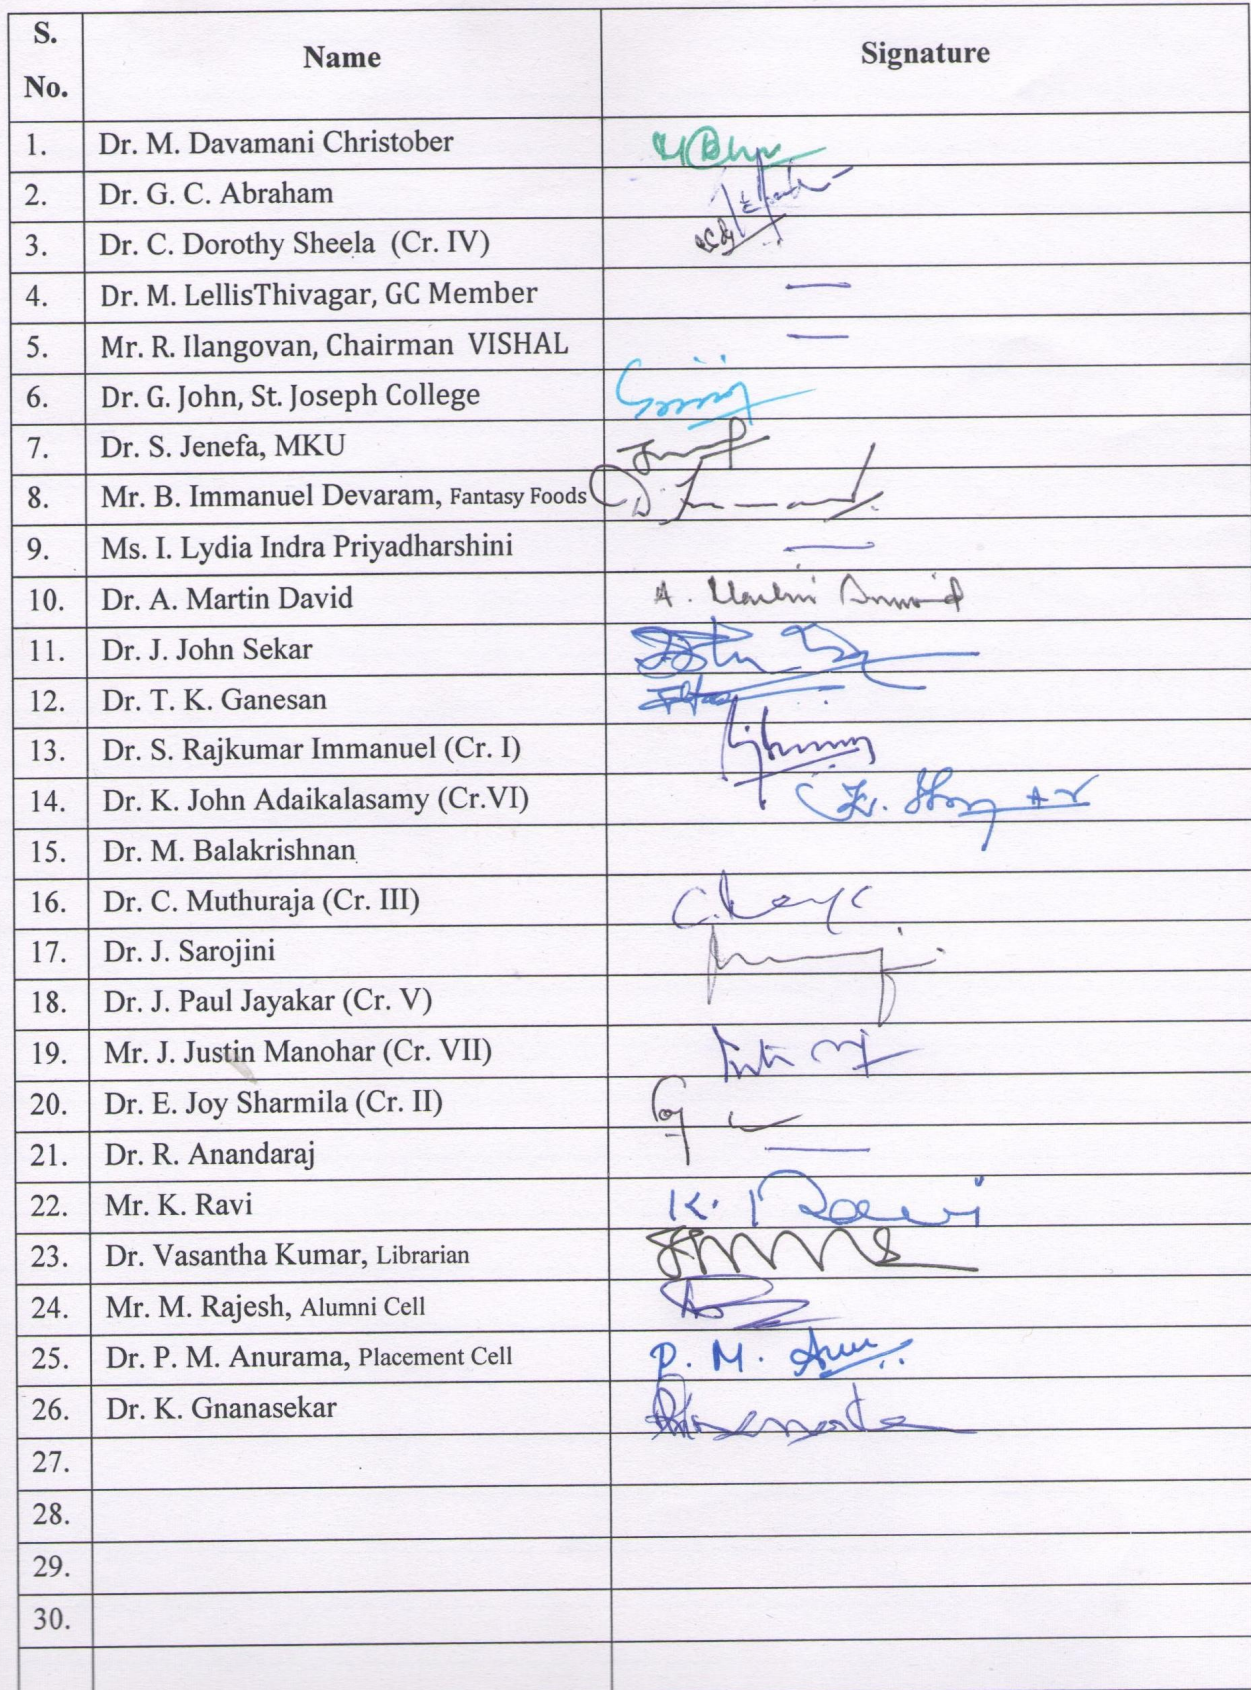 S. No. Name Signature
1. Dr. M. Davamani Christober
2. Dr. G. C. Abraham
3. Dr. C. Dorothy Sheela (Cr. IV)
4. Dr. M. LellisThivagar, GC Member —
5. Mr. R. Ilangovan, Chairman VISHAL —
6. Dr. G. John, St. Joseph College
7. Dr. S. Jenefa, MKU
8. Mr. B. Immanuel Devaram, Fantasy Foods
9. Ms. I. Lydia Indra Priyadharshini —
10. Dr. A. Martin David A. Martin David
11. Dr. J. John Sekar
12. Dr. T. K. Ganesan
13. Dr. S. Rajkumar Immanuel (Cr. I)
14. Dr. K. John Adaikalasamy (Cr.VI)
15. Dr. M. Balakrishnan
16. Dr. C. Muthuraja (Cr. III)
17. Dr. J. Sarojini
18. Dr. J. Paul Jayakar (Cr. V)
19. Mr. J. Justin Manohar (Cr. VII)
20. Dr. E. Joy Sharmila (Cr. II)
21. Dr. R. Anandaraj —
22. Mr. K. Ravi K. Ravi
23. Dr. Vasantha Kumar, Librarian
24. Mr. M. Rajesh, Alumni Cell
25. Dr. P. M. Anurama, Placement Cell P. M. Anu
26. Dr. K. Gnanasekar
27.
28.
29.
30.